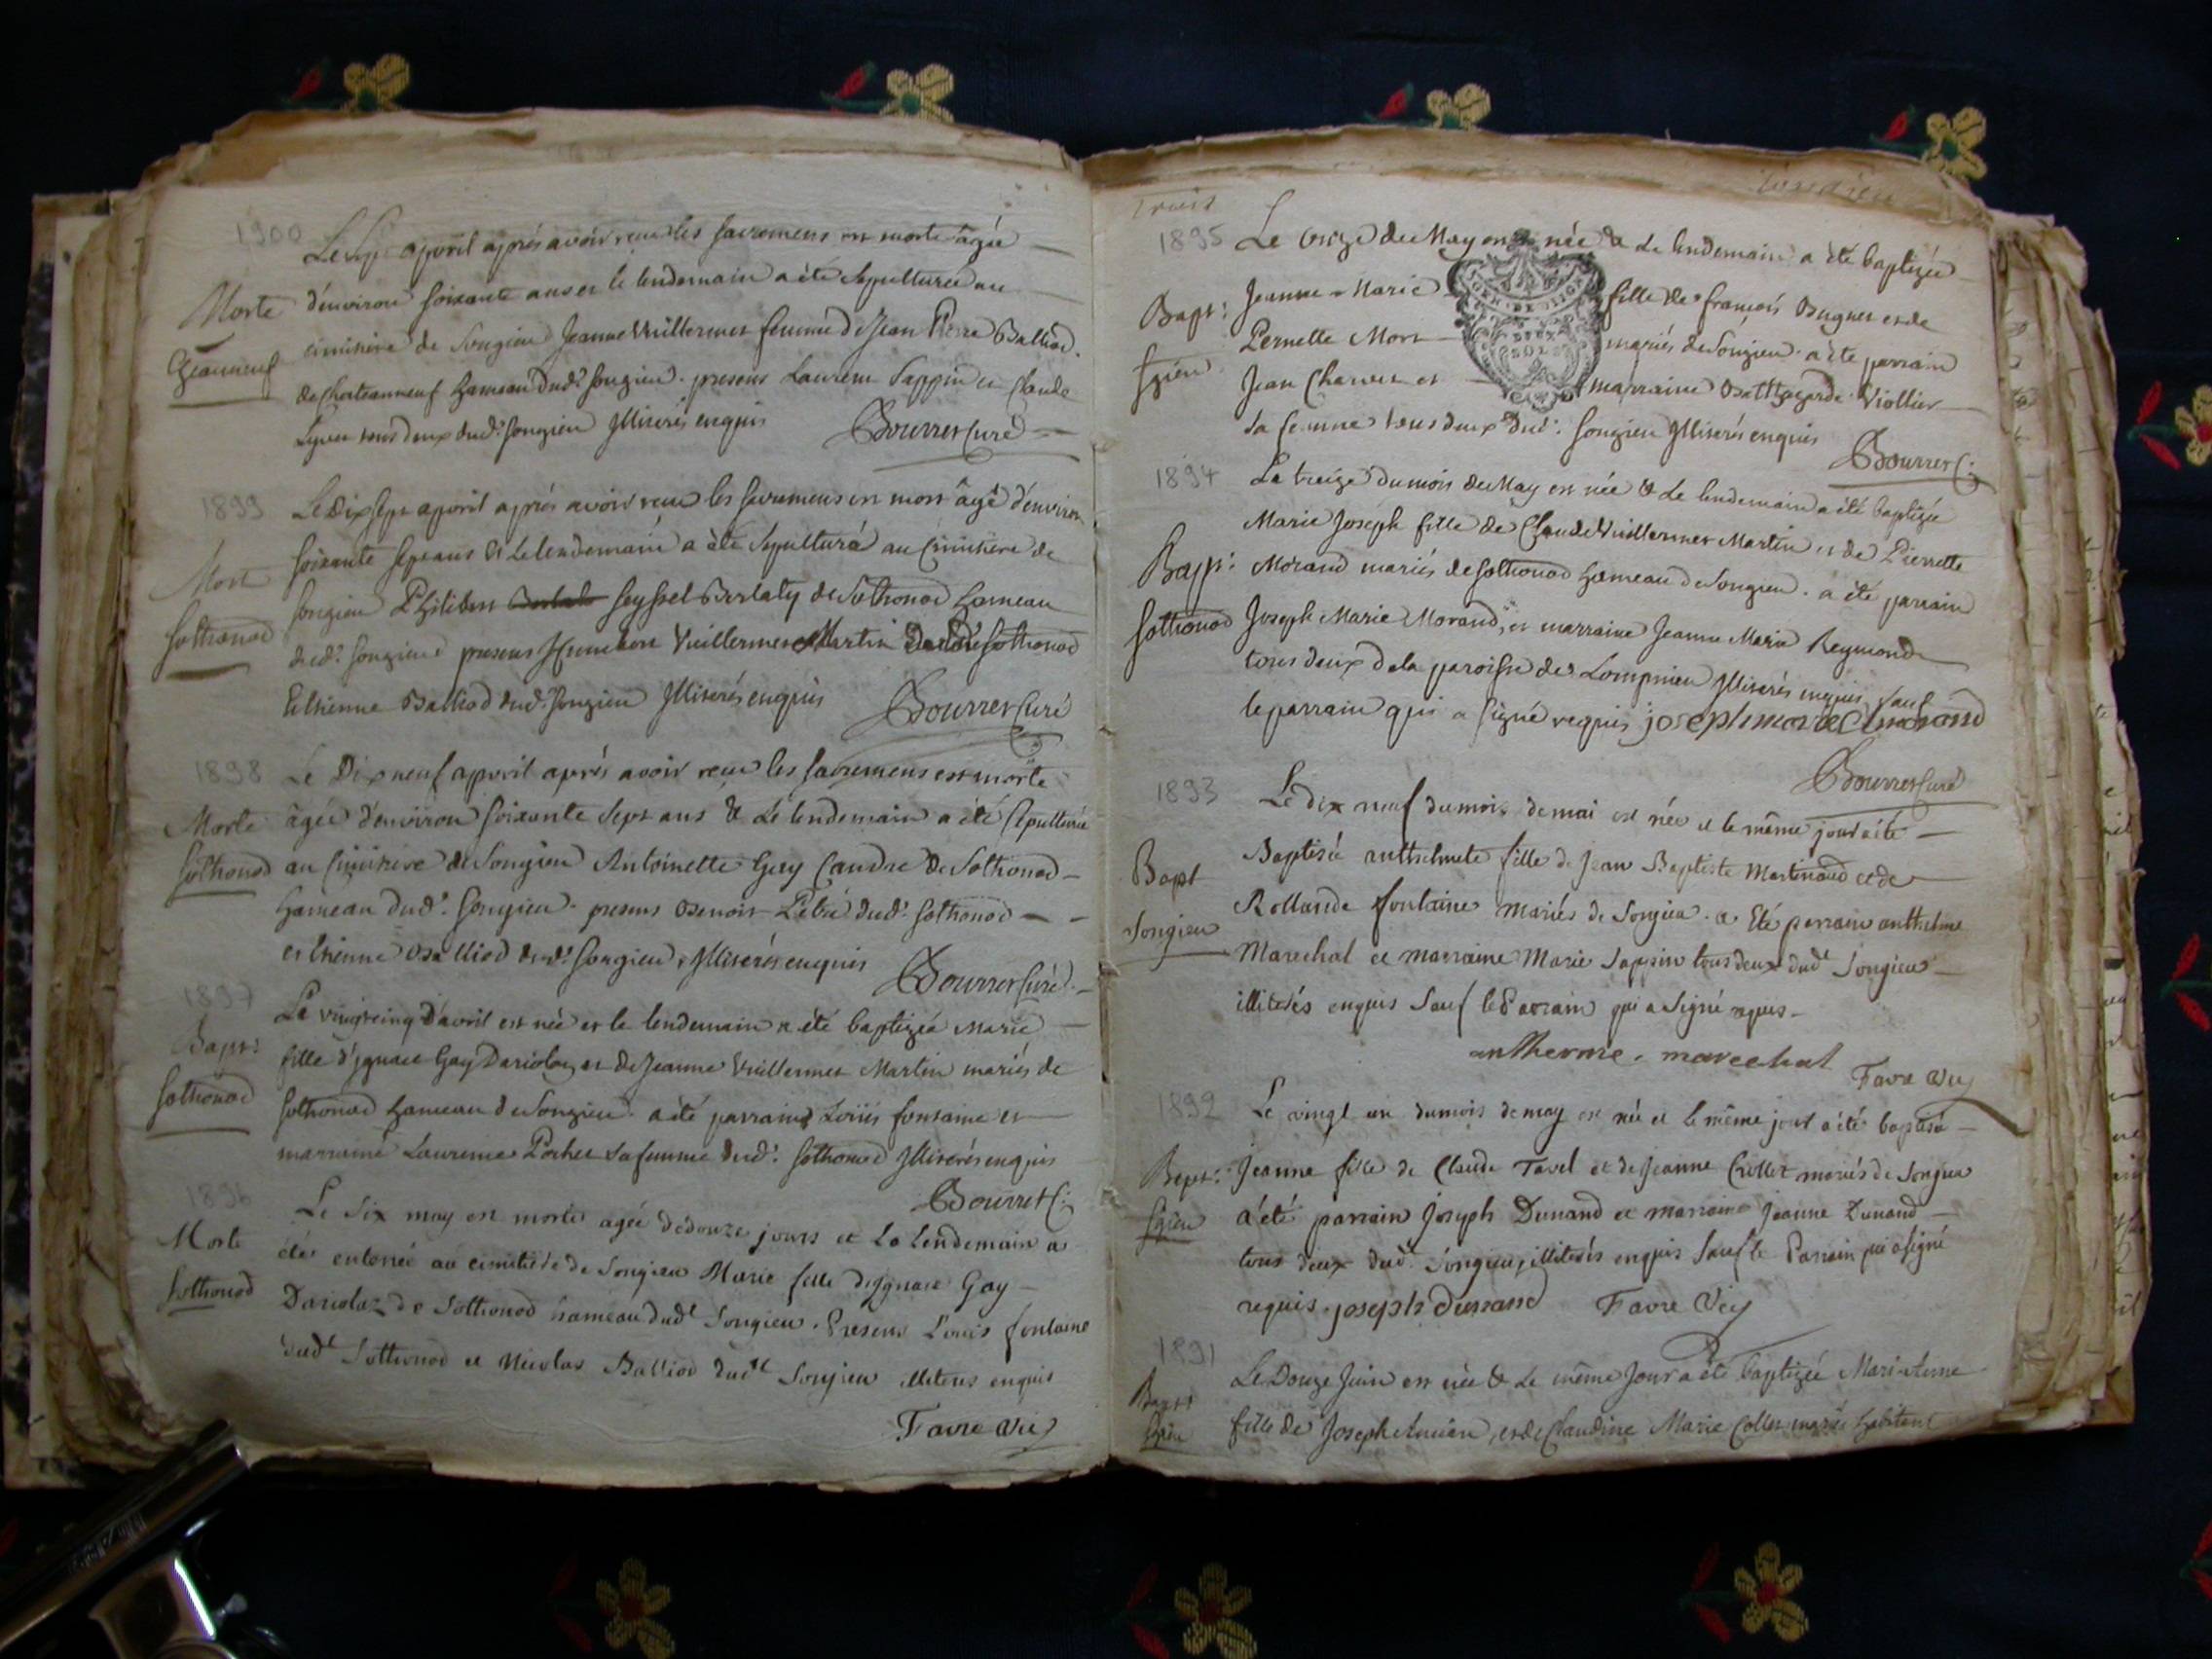 1900
Le sept apvril aprés avoir reçu les sacremens est morte agée
Morte
d'environ soixante ans et le lendemain a été sepulturée au
cimitiere de Songieu Jeanne Vuillermet femme de Jean Pierre Balliod
Chateauneuf
de Chateauneuf hameau dud.t Songieu. presens Laurent Sappin et Claude
tous deux dud.t Songieu Illiterés enquis
Bourret Curé
1899
Le Dix sept apvril aprés avoir reçu les sacremens est mort âgé d'environ
soixante sept ans & Le lendemain a été sepulturé au cimitiere de
Mort
Songieu Philibert Seyssel Berlaty de Sothonod hameau
Sothonod
dud.t Songieu presens Vuillermet Martin Sothonod
Ethienne Balliod dud.t Songieu Illiterés enquis
Bourret Curé
1898
Le Dix neuf apvril aprés avoir reçu les sacremens est morte
Morte
âgée d'environ soixante sept ans & Le lendemain a été sepulturée
Sothonod
au cimitiere de Songieu Antoinette Gay Candre de Sothonod
hameau dud.t Songieu. presens Benoit dud.t Sothonod
et Ethienne Balliod dud.t Songieu, Illiterés enquis
Bourret Curé
1897
Le vingt cinq d'avril est née et le lendemain a été baptizée Marie
Bapt:
fille d'Ignace Gay Dariolaz et de Jeanne Vuillermet Martin mariés de
Sothonod
Sothonod hameau de Songieu. a été parrain Loüis fontaine et
marraine Laurence Pochet sa femme dud.t Sothonod Illiterés enquis
Bourret C:
1896
Le six may est morte agée de douze jours et le lendemain a
Morte
été enterrée au cimitiére de Songieu Marie fille d'ignace Gay
Sothonod
Dariolaz de Sothonod hameau dud.t Songieu. Presens Louis fontaine
dud.t Sothonod et Nicolas Balliod dud.t Songieu illiterés enquis
Favre Vic
1895
Le onze de May est née & Le lendemain a été baptizée
Bapt:
Jeanne-Marie fille de françois Bugnet et de
Pernette Mort mariés de Songieu. a été parrain
Sgieu
Jean Charvet et marraine Viollier
Sa femme tous deux dud.t Songieu Illiterés enquis
Bourret C:
1894
Le treize du mois de May est née & Le lendemain a été baptizée
Marie Joseph fille de Claude Vuillermet Martin et de Pierrette
Bapt:
Morand mariés de Sothonod hameau de Songieu. a été parrain
Sothonod
Joseph Marie Morand, et marraine Jeanne Marie Reymond
tous deux de la paroisse de Lompnieu Illiterés enquis sauf
le parrain qui a signé requis joseph marie morand
Bourret Curé
1893
Le dix neuf du mois de mai est née et le même jour a été
Bapt
Baptisée anthelmete fille de Jean Baptiste Martinaud et de
Songieu
Rollande fontaine mariés de Songieu. a Eté parrain anthelme
Marechal et marraine Marie Sappin tous deux dud.t Songieu
illiterés enquis Sauf le Parrain qui a Signé requis
antherme. marechal
Favre Vic
1892
Le vingt un du mois de may est née et le même jour a été baptisé
Bapt:
Jeanne fille de Claude Tavel et de Jeanne Crollet mariés de Songieu
Sgieu
a été parrain Joseph Dunand et marraine Jeanne Dunand
tous deux dud.t Songieu, illiterés enquis Sauf le Parrain qui a signé
requis. joseph dunand Favre Vic
1891
Le Douze Juin est née & Le même Jour a été baptizée Marie
Bapt
Sgieu
fille de Joseph et de Claudine Marie Collet mariés habitant